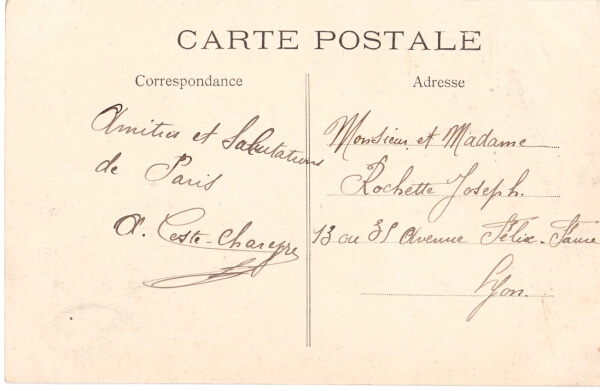 CARTE POSTALE
Correspondance
Amitiés et Salutations
de Paris
A. Ceste-Chareyre
Adresse
Monsieur et Madame
Rochette Joseph.
13 ou 31 Avenue Félix-Faure
Lyon.